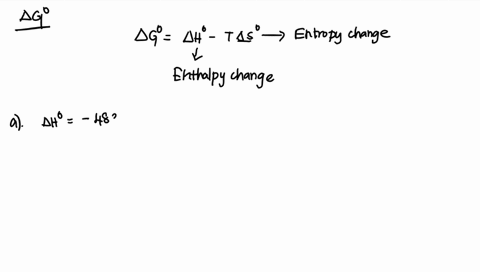 ΔG⁰
ΔG⁰ = ΔH⁰ - TΔS⁰ → Entropy change
↓
Enthalpy change
a). ΔH⁰ = - 48